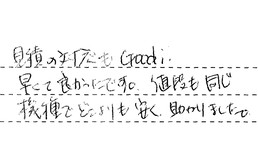 見積の対応もGood!
早くて良かったです。値段も同じ
機種でどこよりも安く、助かりました。